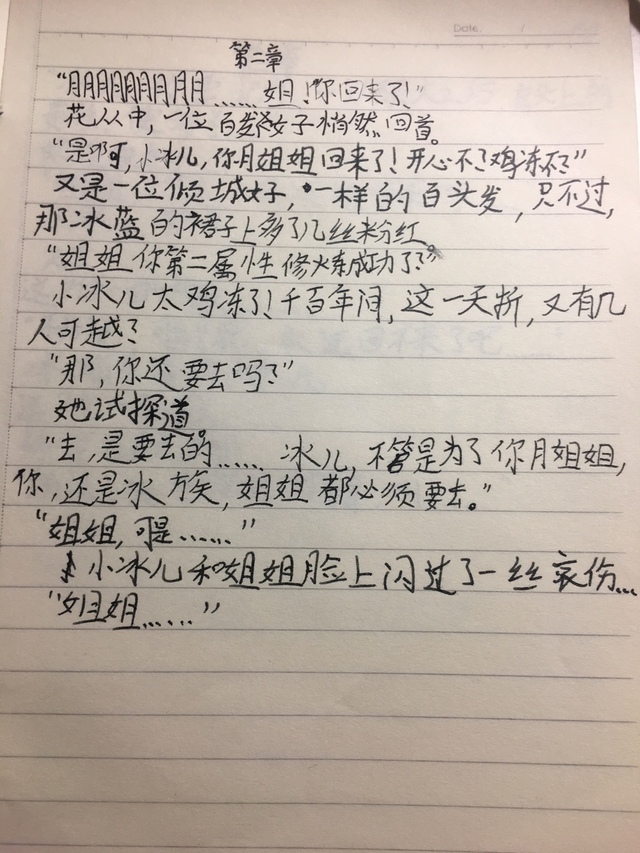 Date.      /
第二章
“月月月月月月月月月……姐！你回来了！”
花丛中，一位白发女子悄然回首。
“是啊，小冰儿，你月姐姐回来了！开心不？鸡冻不？”
又是一位倾城女子，一样的白头发，只不过，
那冰蓝的裙子上多了几丝粉红。
“姐姐你第二属性修炼成功了？”
小冰儿太鸡冻了！千百年间，这一天折，又有几
人可越？
“那，你还要去吗？”
她试探道
“去，是要去的……冰儿，不管是为了你月姐姐，
你，还是冰族，姐姐都必须要去。”
“姐姐，可是……”
小冰儿和姐姐脸上闪过了一丝哀伤…
“姐姐……”